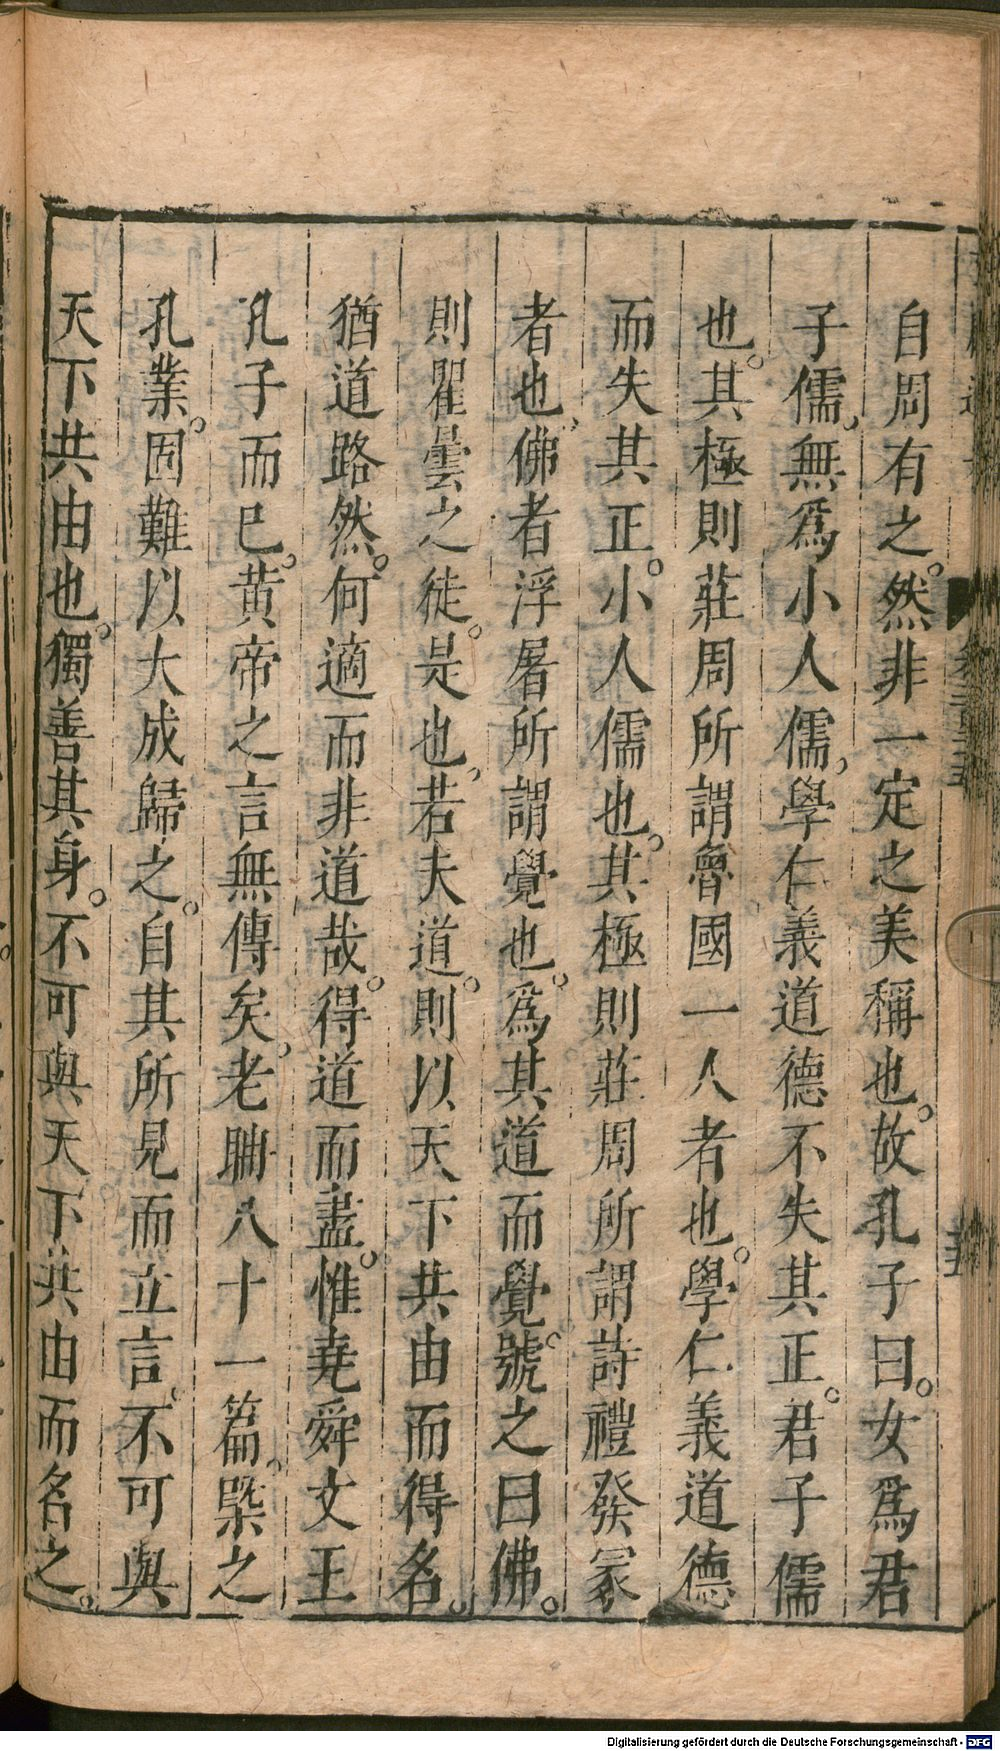 自周有之。然非一定之美稱也。故孔子曰。女爲君
子儒，無爲小人儒，學仁義道德不失其正。君子儒
也。其極則莊周所謂魯國一人者也。學仁義道德
而失其正。小人儒也。其極則莊周所謂詩禮發冢
者也，佛者浮屠所謂覺也。爲其道而覺。號之曰佛。
則瞿曇之徒。是也，若夫道。則以天下共由而得名。
猶道路然。何適而非道哉。得道而盡。惟堯舜文王
孔子而已。黄帝之言無傳矣，老聃八十一篇。槩之
孔業。固難以大成歸之。自其所見而立言。不可與
天下共由也。獨善其身。不可與天下共由而名之。
Digitalisierung gefördert durch die Deutsche Forschungsgemeinschaft - DFG